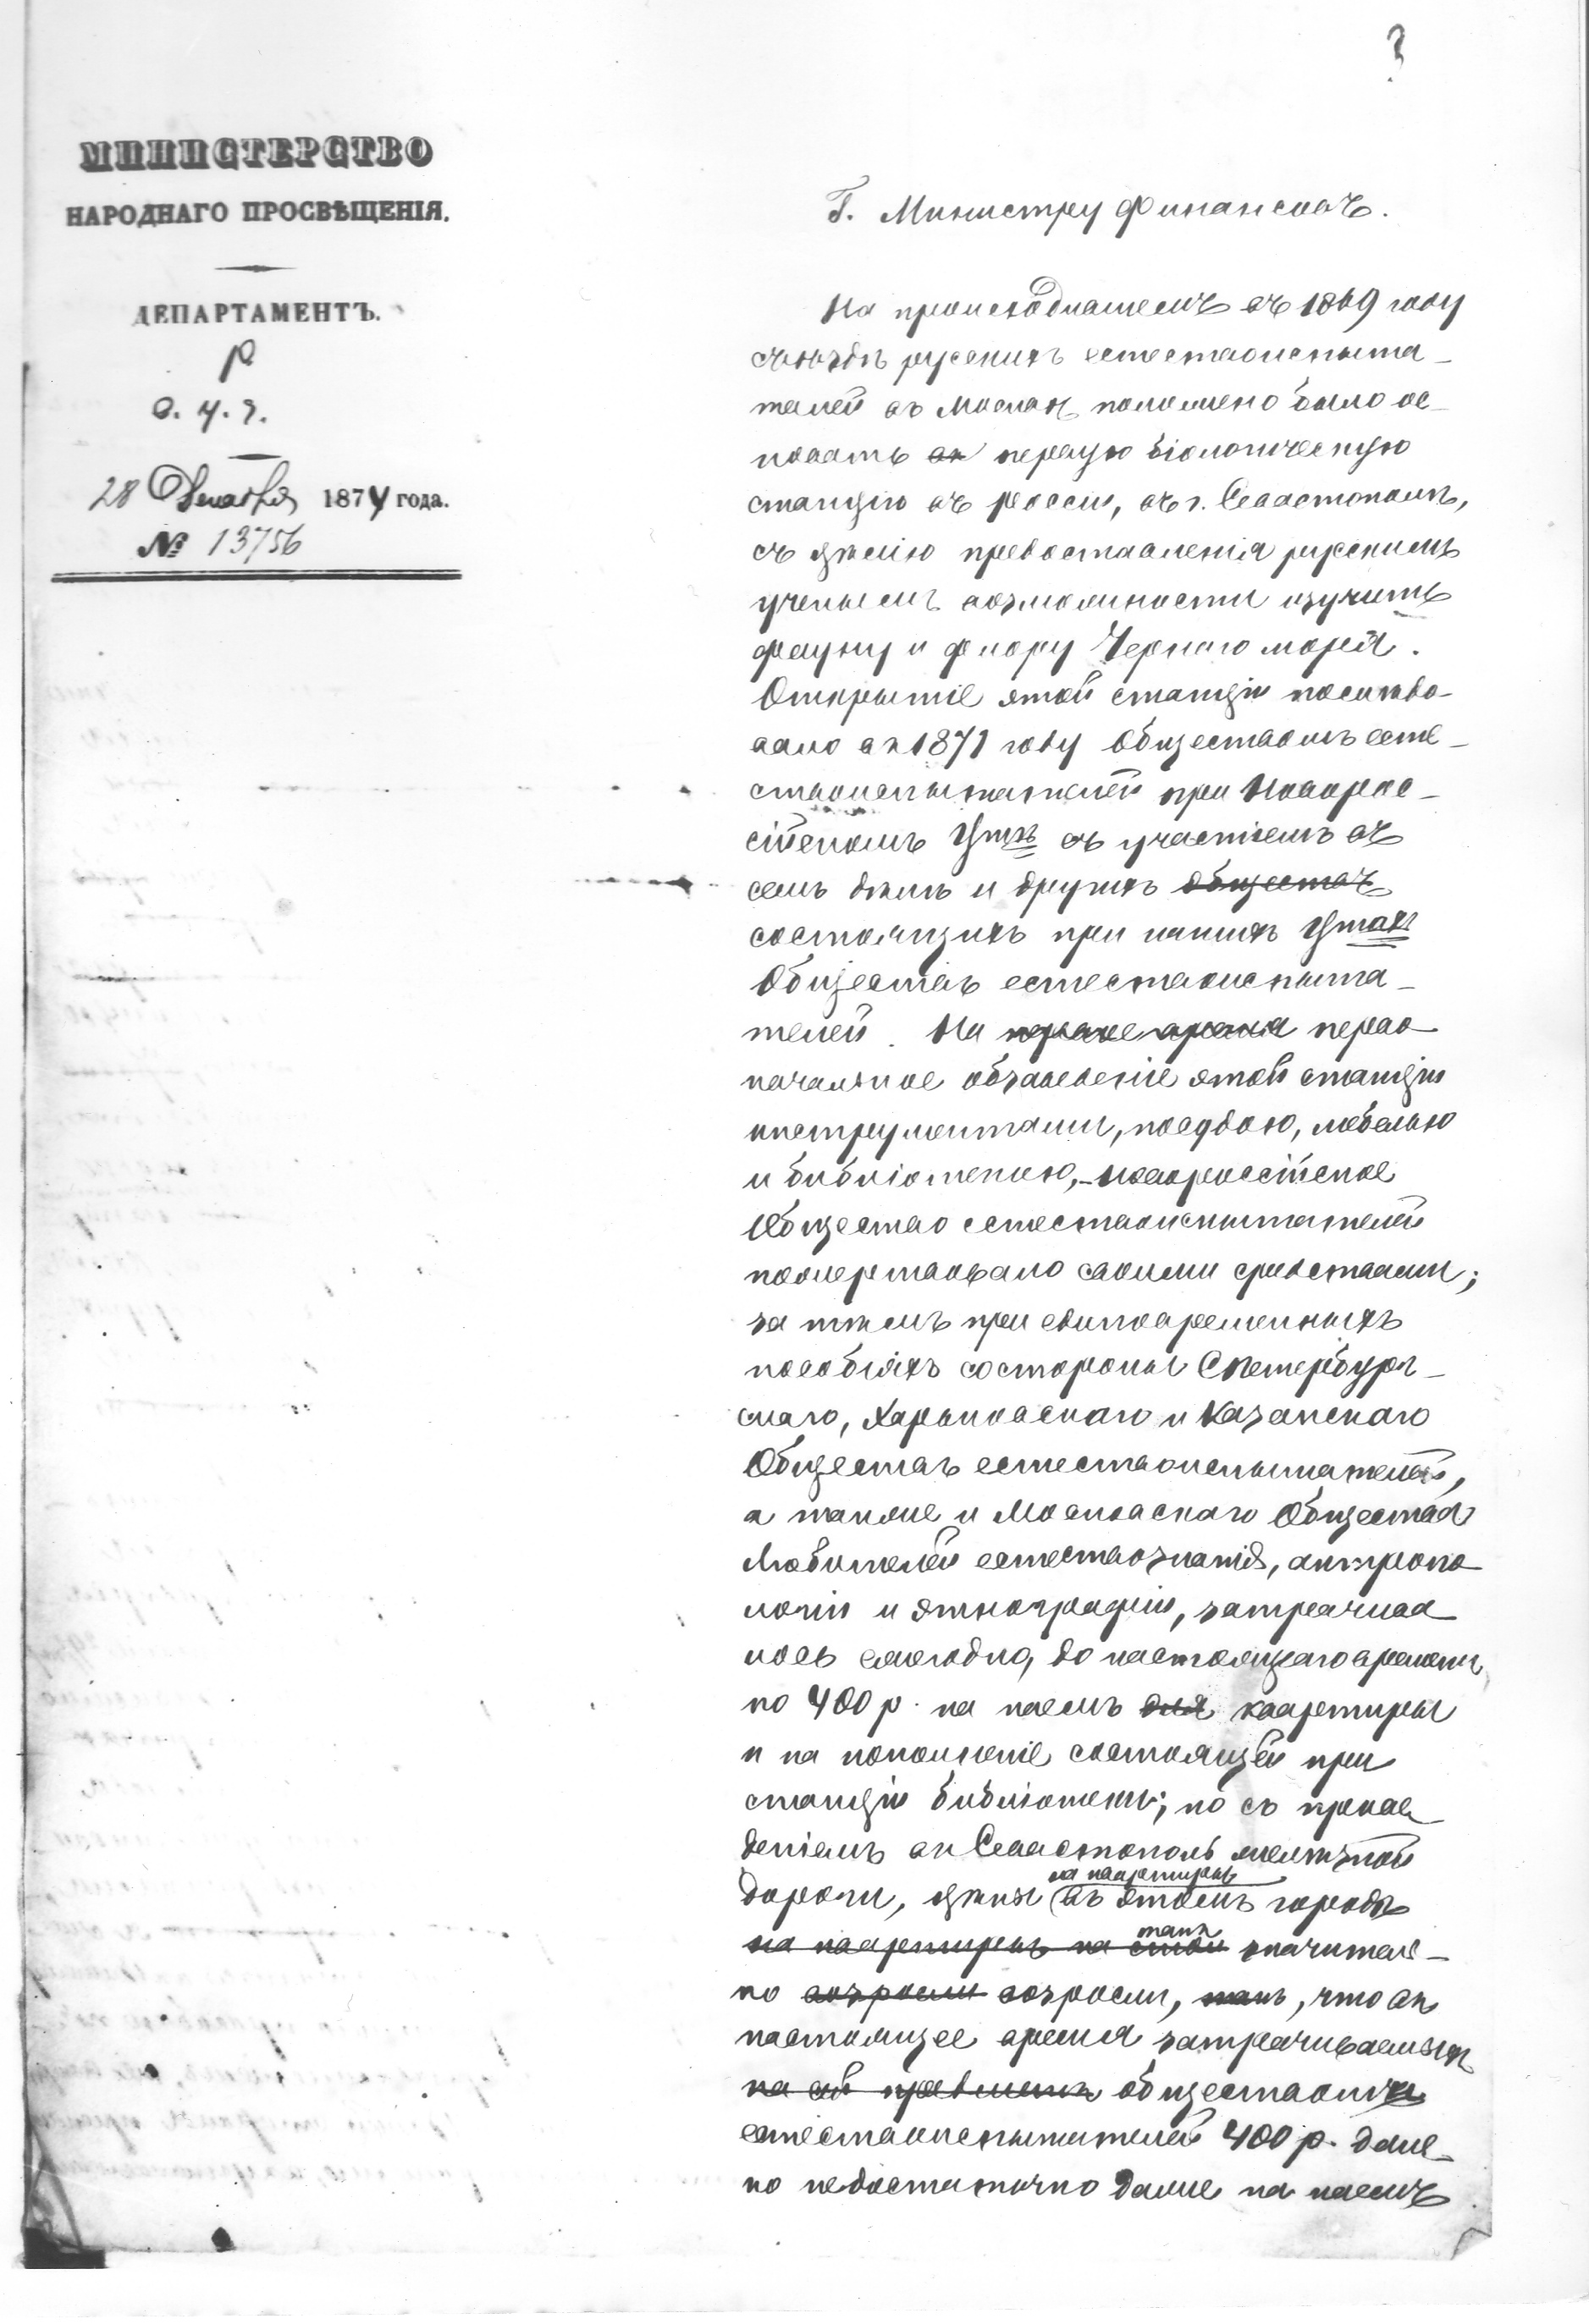 ?
МИНИСТЕРСТВО
НАРОДНАГО ПРОСВѢЩЕНІЯ.
ДЕПАРТАМЕНТЪ.
Р
28 Декабря 1874 года.
№ 13756
Г. Министру Финансовъ.
На происходившемъ въ 1869 году
съѣздѣ русскихъ естествоиспыта-
телей въ Москвѣ положено было ос-
новать въ первую біологическую
станцію въ Россіи, въ г. Севастополѣ,
съ цѣлію предоставленія русскимъ
ученымъ возможности изучить
фауну и флору Чернаго моря.
Открытіе этой станціи послѣдо-
вало въ 1871 году Обществомъ есте-
ствоиспытателей при Новорос-
сійскомъ Утѣ съ участіемъ въ
семъ дѣлѣ и другихъ обществъ
состоящихъ при нашихъ Утахъ
Обществъ естествоиспыта-
телей. На первое время перво
начальное обзаведеніе этой станціи
инструментами, посудою, мебелью
и библіотекою, - Новороссійское
Общество естествоиспытателей
пожертвовало своими средствами;
за тѣмъ при единовременныхъ
пособіяхъ со стороны С Петербург-
скаго, Харьковскаго и Казанскаго
Обществъ естествоиспытателей,
а также и Московскаго Общества
Любителей естествознанія, антропо
логіи и этнографіи, затрачива
лось ежегодно, до настоящаго времени,
по 400 р. на наемъ для квартиры
и на пополненіе состоящей при
станціи библіотеки; но съ провед
деніемъ въ Севастополь желѣзной
на квартиры
дороги, цѣны въ этомъ городѣ
такъ
на квартиры на столь значитель-
но возросли возросли, такъ, что въ
настоящее время затрачиваемыхъ
на сей предметъ обществами
естествоиспытателей 400 р. дале-
ко недостаточно даже на наемъ